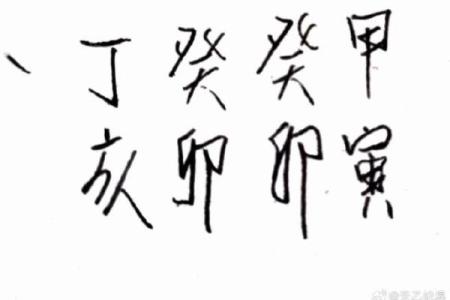 丁癸癸甲
亥卯卯寅